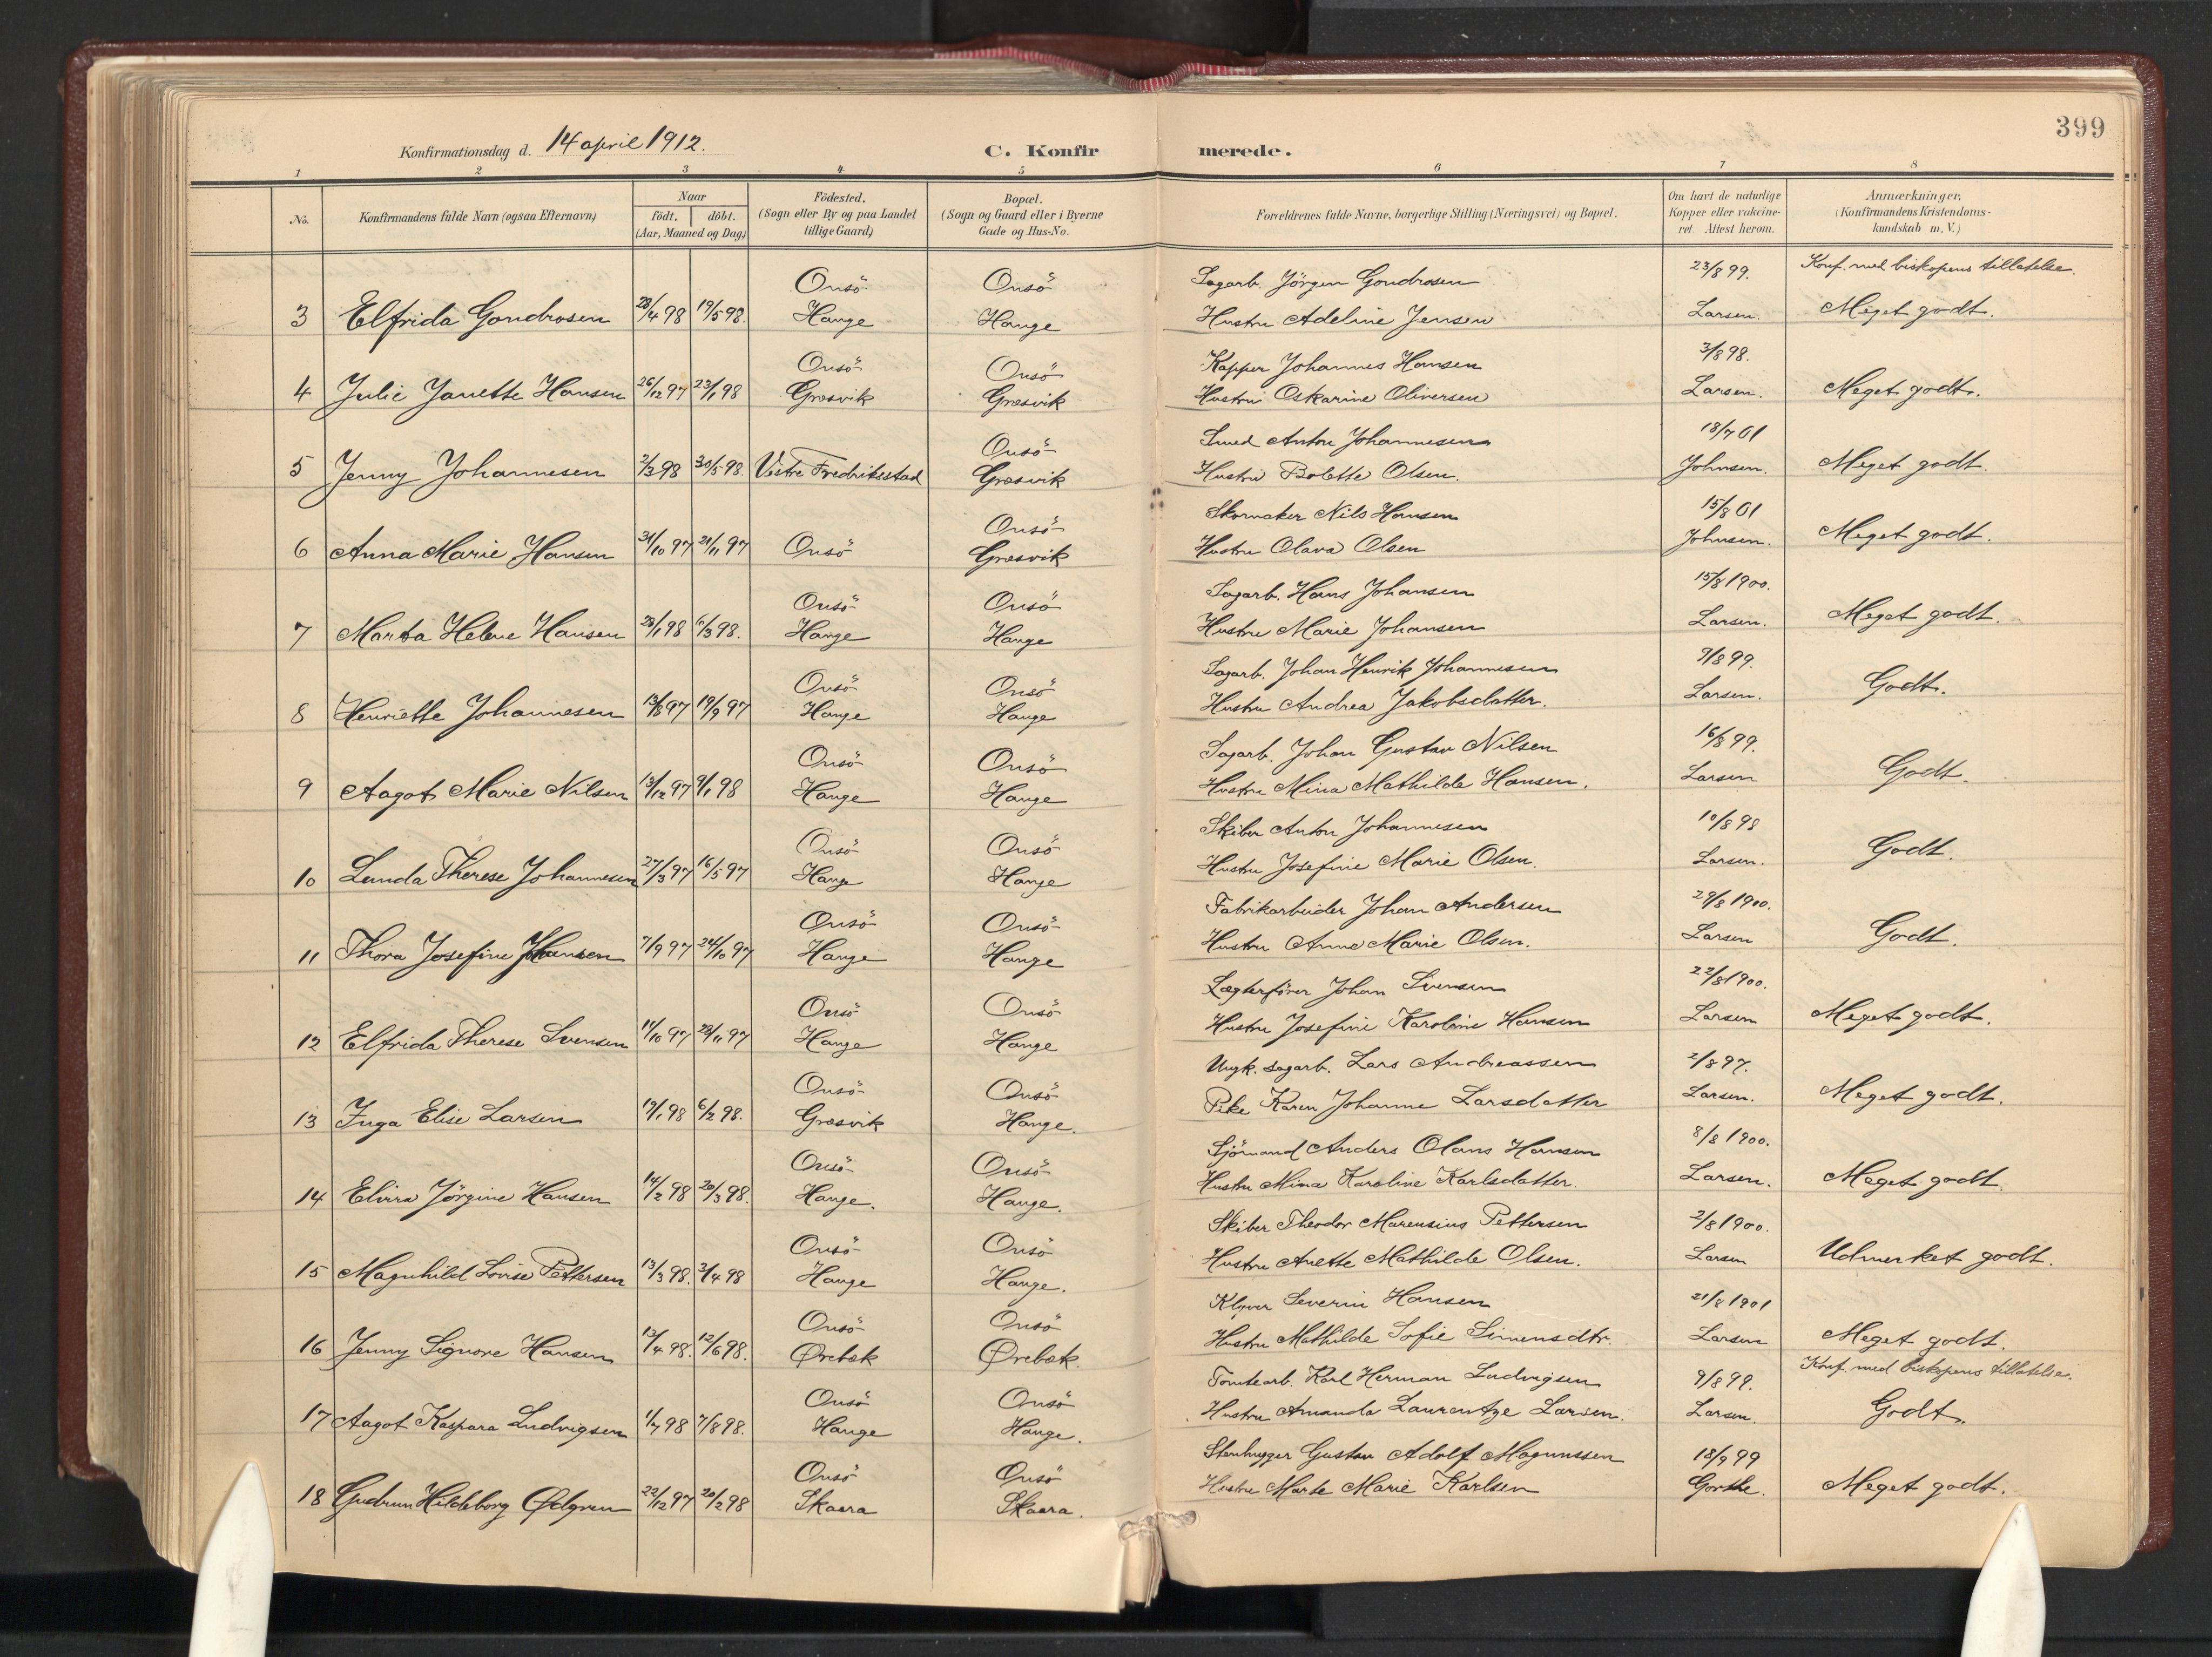 399
Konfirmationsdag d. 14 april 1912. C. Konfirmerede.
1 2 3 4 5 6 7 8
No. Konfirmandens fulde Navn (ogsaa Efternavn) Naar födt. döbt. (Aar, Maaned og Dag) Födested. (Sogn eller By og paa Landet tillige Gaard) Bopæl. (Sogn og Gaard eller i Byerne Gade og Hus-No. Forældrenes fulde Navne, borgerlige Stilling (Næringsvei) og Bopæl. Om havt de naturlige Kopper eller vakcineret. Attest herom. Anmærkninger. (Konfirmandens Kristendomskundskab m. V.)
Onsö Onsö Sagarb. Jörgen Gondrosen 23/8 99. Konf. med biskopens tillatelse.
3 Elfrida Gondrosen 28/4 98 19/5 98. Hauge Hauge Hustru Adeline Jensen Larsen. Meget godt.
Onsö Onsö Kapper Johannes Hansen 3/8 98.
4 Julie Janette Hansen 26/12 97 23/1 98 Græsvik Græsvik Hustru Oskarine Oliversen Larsen. Meget godt.
Onsö Smed Anton Johannesen 18/7 01
5 Jenny Johannesen 2/3 98 30/5 98 Vestre Fredriksstad Græsvik Hustru Bolette Olsen. Johnsen. Meget godt.
Onsö Skomaker Nils Hansen 15/8 01
6 Anna Marie Hansen 31/10 97 21/11 97 Onsö Græsvik Hustru Olava Olsen Johnsen. Meget godt.
Onsö Onsö Sagarb. Hans Johansen 15/8 1900.
7 Marta Helene Hansen 28/1 98 6/3 98. Hauge Hauge Hustru Marie Johansen Larsen. Meget godt.
Onsö Onsö Sagarb. Johan Henrik Johannesen 9/8 99.
8 Henriette Johannesen 13/8 97 19/9 97 Hauge Hauge Hustru Andrea Jakobsdatter. Larsen. Godt.
Onsö Onsö Sagarb. Johan Gustav Nilsen 16/8 99.
9 Aagot Marie Nilsen 13/12 97 9/1 98 Hauge Hauge Hustru Mina Mathilde Hansen. Larsen Godt.
Onsö Onsö Skiber Anton Johannesen 10/8 98
10 Lunda Therese Johannesen 27/3 97 16/5 97 Hauge Hauge Hustru Josefine Marie Olsen. Larsen. Godt.
Onsö Onsö Fabrikarbeider Johan Andersen 29/8 1900.
11 Thora Josefine Johansen 7/9 97 24/10 97 Hauge Hauge Hustru Anne Marie Olsen. Larsen Godt.
Onsö Onsö Lægterfører Johan Svensen 22/8 1900.
12 Elfrida Therese Svensen 11/10 97 28/11 97 Hauge Hauge Hustru Josefine Karoline Hansen Larsen Meget godt.
Onsö Onsö Ungk. sagarb. Lars Andreassen 2/8 97.
13 Inga Elise Larsen 19/1 98 6/2 98. Græsvik Hauge. Pike Karen Johanne Larsdatter Larsen. Meget godt.
Onsö Onsö Sjömand Anders Olaus Hansen 8/8 1900.
14 Elvira Jörgine Hansen 14/2 98 20/3 98. Hauge. Hauge. Hustru Mina Karoline Karlsdatter. Larsen. Meget godt.
Onsö Onsö Skiber Theodor Marensius Pettersen 2/8 1900.
15 Magnhild Lovise Pettersen 13/3 98. 3/4 98 Hauge Hauge. Hustru Anette Mathilde Olsen. Larsen Udmerket godt.
Onsö Onsö Klyver Severin Hansen 21/8 1901
16 Jenny Signore Hansen 13/4 98. 12/6 98. Ørebæk Ørebæk. Hustru Mathilde Sofie Simensdtr. Larsen Meget godt.
Onsö Onsö Tomtearb. Karl Herman Ludvigsen 9/8 99. Konf. med biskopens tillatelse.
17 Aagot Kaspara Ludvigsen 1/7 98 7/8 98. Hauge Hauge. Hustru Amanda Laurentze Larsen. Larsen. Godt.
Onsö Onsö Stenhugger Gustav Adolf Magnussen 18/9 99
18 Gudrun Hildeborg Ødgren 22/12 97 20/2 98 Skaara Skaara. Hustru Marte Marie Karlsen Gorthe. Meget godt.